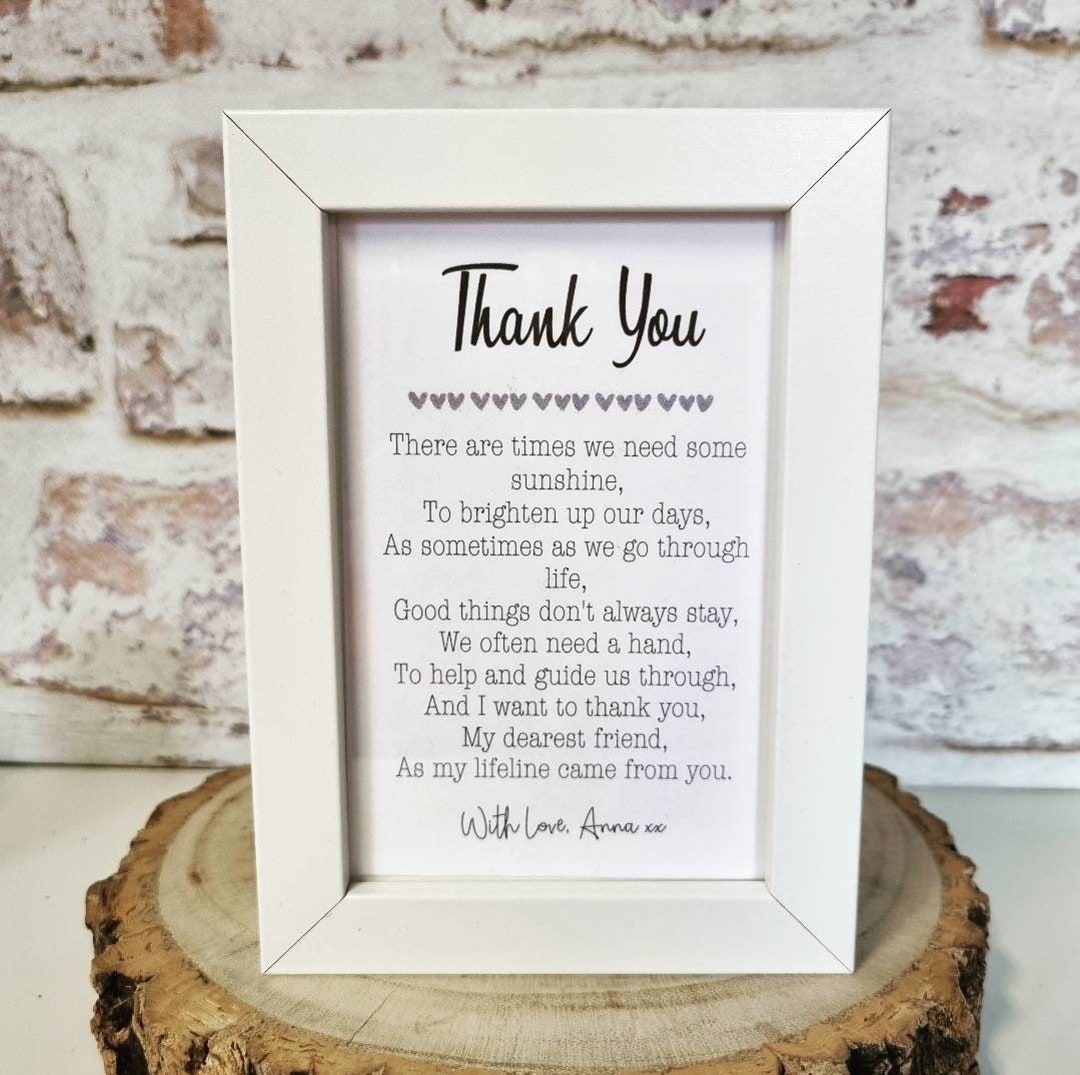 Thank You
There are times we need some
sunshine,
To brighten up our days,
As sometimes as we go through
life,
Good things don't always stay,
We often need a hand,
To help and guide us through,
And I want to thank you,
My dearest friend,
As my lifeline came from you.
With Love, Anna xx